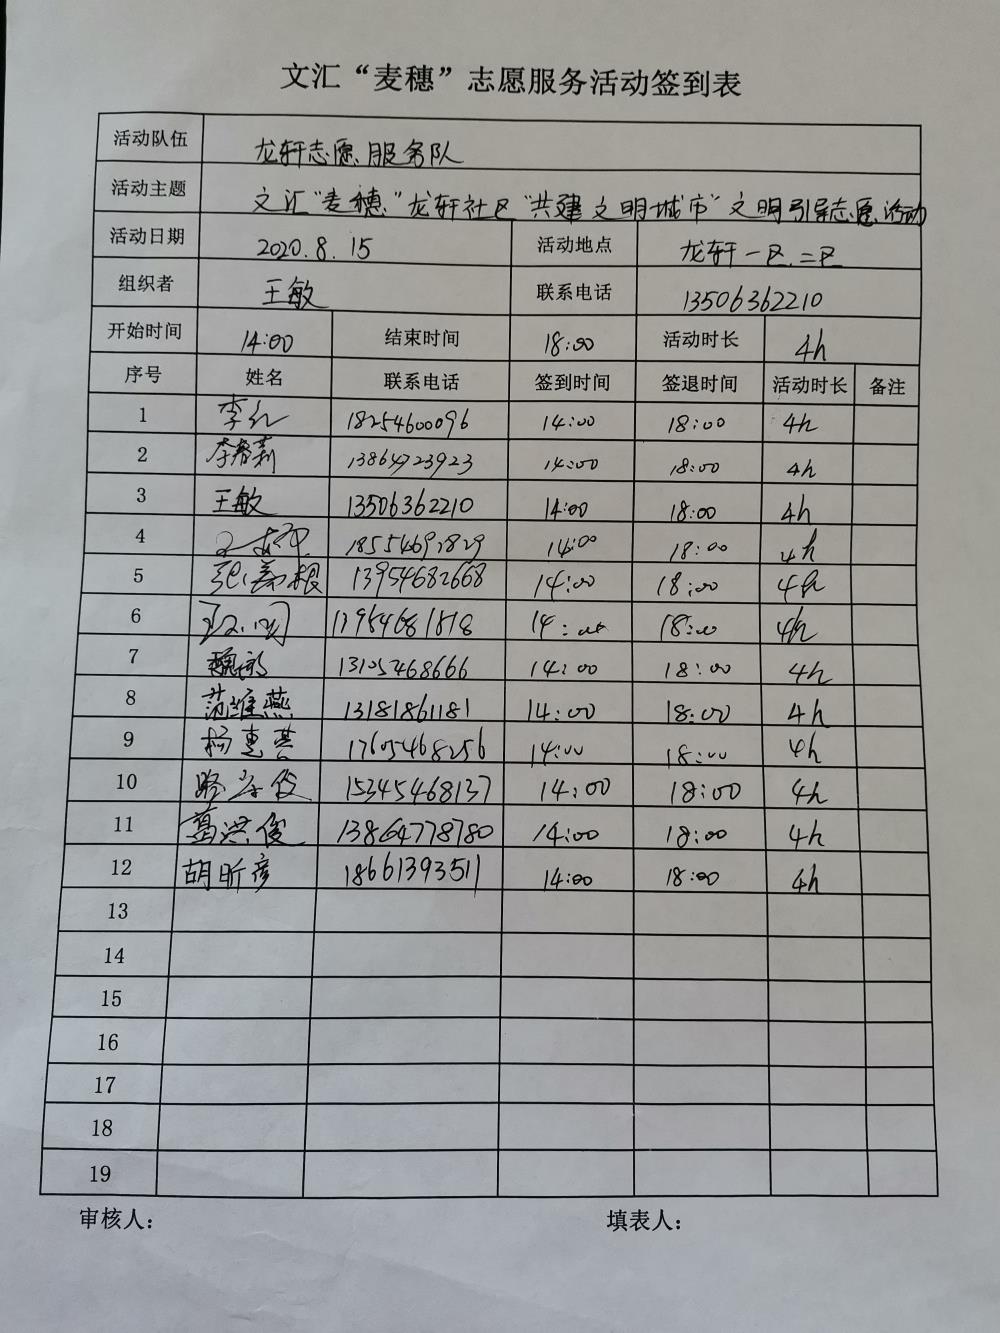 文汇“麦穗”志愿服务活动签到表
活动队伍 龙轩志愿服务队
活动主题 文汇“麦穗”龙轩社区“共建文明城市”文明引导志愿活动
活动日期 2020.8.15 活动地点 龙轩一区.二区
组织者 王敏 联系电话 13506362210
开始时间 14:00 结束时间 18:00 活动时长 4h
序号 姓名 联系电话 签到时间 签退时间 活动时长 备注
1 李红 18254600096 14:00 18:00 4h
2 李春莉 13864723923 14:00 18:00 4h
3 王敏 13506362210 14:00 18:00 4h
4 14:00 18:00 4h
5 13954682668 14:00 18:00 4h
6 13954681818 14:00 18:00 4h
7 魏敏 13105468666 14:00 18:00 4h
8 范维燕 13181861181 14:00 18:00 4h
9 杨惠芸 17605468256 14:00 18:00 4h
10 15345468137 14:00 18:00 4h
11 葛洪俊 13864778780 14:00 18:00 4h
12 胡昕彦 18661393511 14:00 18:00 4h
13
14
15
16
17
18
19
审核人： 填表人：